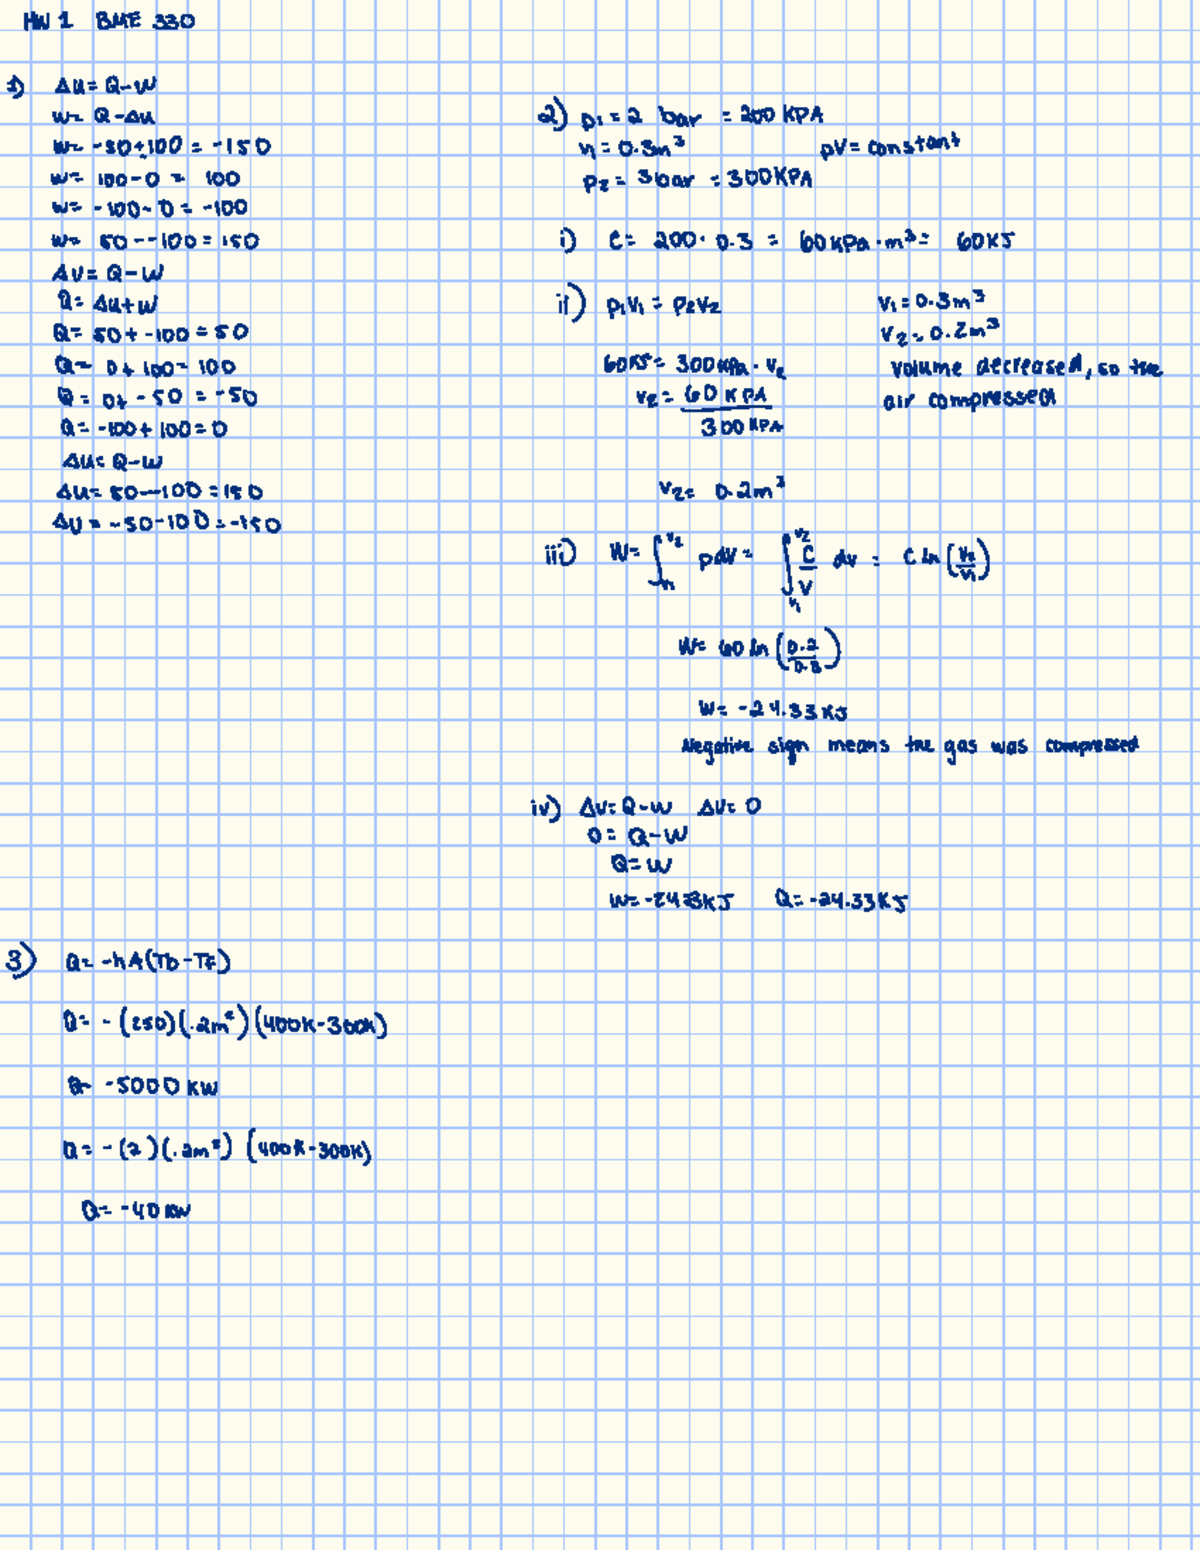 HW 1 BME 330
1) ΔU = Q-W
W= Q-ΔU
W= -50+100 = -150
W= 100-0 = 100
W= -100-0 = -100
W= 50--100 = 150
ΔU = Q-W
Q= ΔU+W
Q= 50+-100 = 50
Q= 0+100= 100
Q= 0+-50 = -50
Q= -100+100=0
ΔU= Q-W
ΔU= 50--100 = 150
ΔU = -50-100 = -150
2) P1 = 2 bar = 200 KPA
V1 = 0.3m³ pV= constant
P2 = 3bar = 300KPA
i) C= 200 · 0.3 = 60 KPa · m³ = 60KJ
ii) P1V1 = P2V2 V1 = 0.3m³
V2 = 0.2m³
60KJ = 300KPa · V2 volume decreased, so the
V2 = 60 KPA / 300 KPA air compressed
V2 = 0.2m³
iii) W= ∫V1 V2 pdV = ∫V1 V2 C/V dV = C ln (V2/V1)
W= 60 ln (0.2/0.3)
W= -24.33 KJ
Negative sign means the gas was compressed
iv) ΔU= Q-W ΔU= 0
0 = Q-W
Q=W
W= -24.33KJ Q= -24.33KJ
3) Q= -hA(Tb-Tf)
Q= -(250)(.2m²)(400K-300K)
Q= -5000 KW
Q= -(2)(.2m²) (400K-300K)
Q= -40 KW